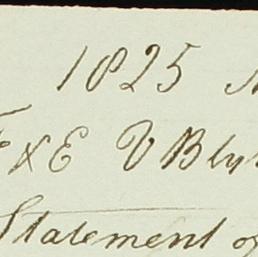 1825
F & E V Bly
Statement of